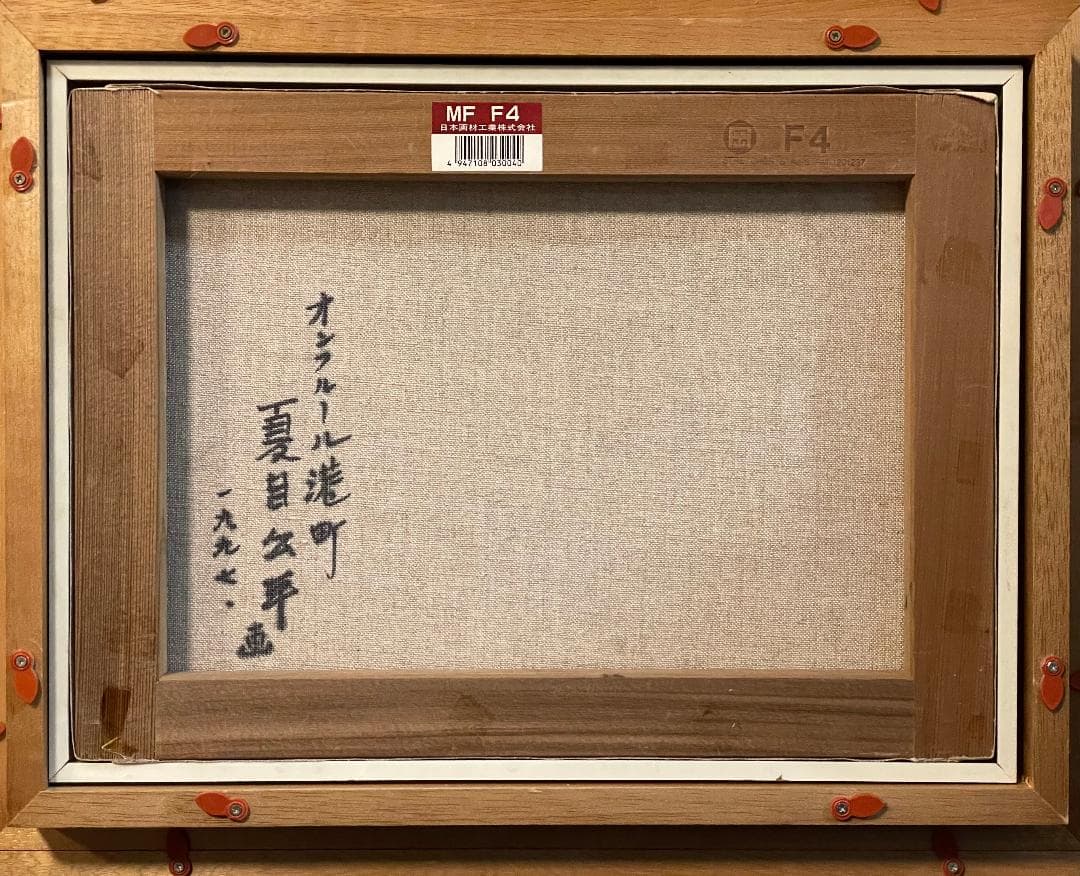 MF F4
日本画材工業株式会社
4 947108 030040
F4
オンフルール港町
夏目公平
画
一九九七.